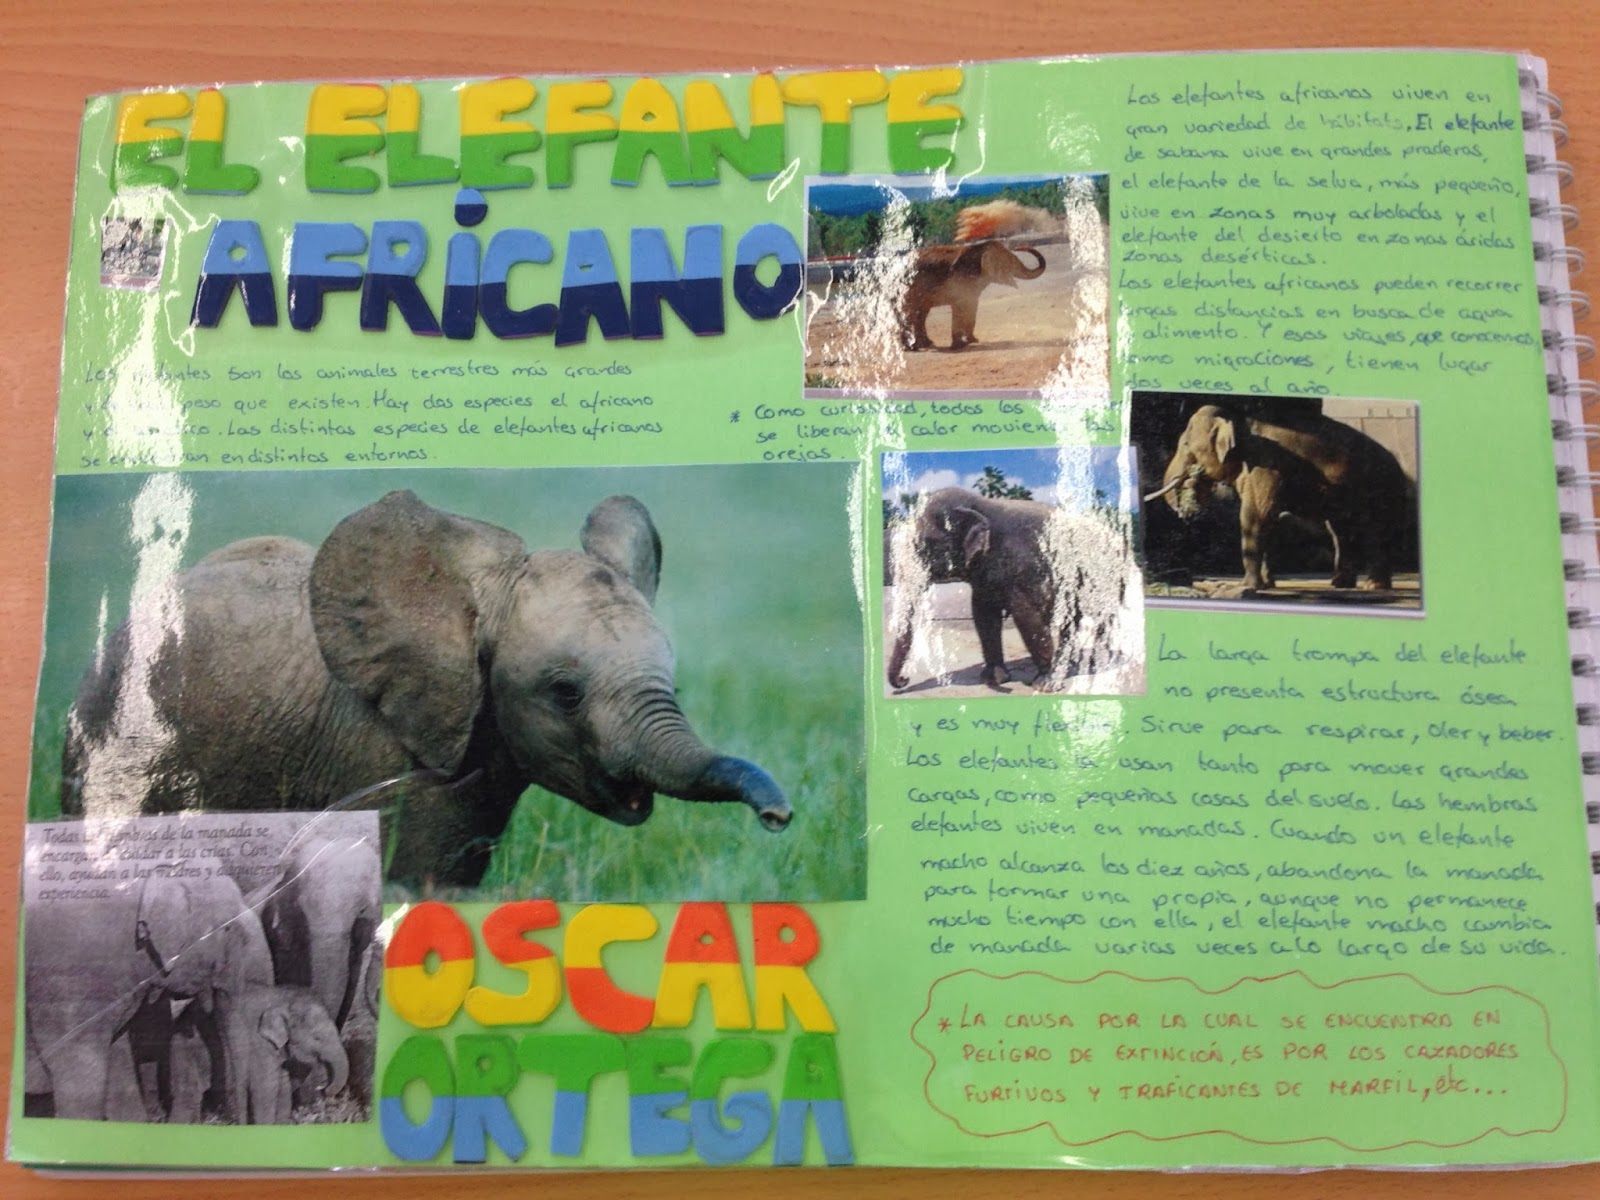 EL ELEFANTE
AFRICANO
Los son los animales terrestres más grandes
y peso que existen. Hay dos especies el africano
y. Las distintas especies de elefantes africanos
se en distintos entornos.
* Como curiosidad, todos los
se liberan calor moviendo las
orejas.
Los elefantes africanos viven en
gran variedad de hábitats. El elefante
de sabana vive en grandes praderas,
el elefante de la selva, más pequeño,
vive en zonas muy arboladas y el
elefante del desierto en zonas áridas
zonas desérticas.
Los elefantes africanos pueden recorrer
distancias en busca de agua
alimento. Y esos viajes, que conocemos
como migraciones, tienen lugar
dos veces al año.
La larga trompa del elefante
no presenta estructura ósea
y es muy flexible. Sirve para respirar, oler y beber.
Los elefantes la usan tanto para mover grandes
cargas, como pequeñas cosas del suelo. Las hembras
elefantes viven en manadas. Cuando un elefante
macho alcanza los diez años, abandona la manada
para formar una propia, aunque no permanece
mucho tiempo con ella, el elefante macho cambia
de manada varias veces a lo largo de su vida.
Todas las hembras de la manada se
encargan de cuidar a las crías. Con
ello, ayudan a las madres y adquieren
experiencia.
OSCAR
ORTEGA
* LA CAUSA POR LA CUAL SE ENCUENTRA EN
PELIGRO DE EXTINCIÓN, ES POR LOS CAZADORES
FURTIVOS Y TRAFICANTES DE MARFIL, etc...